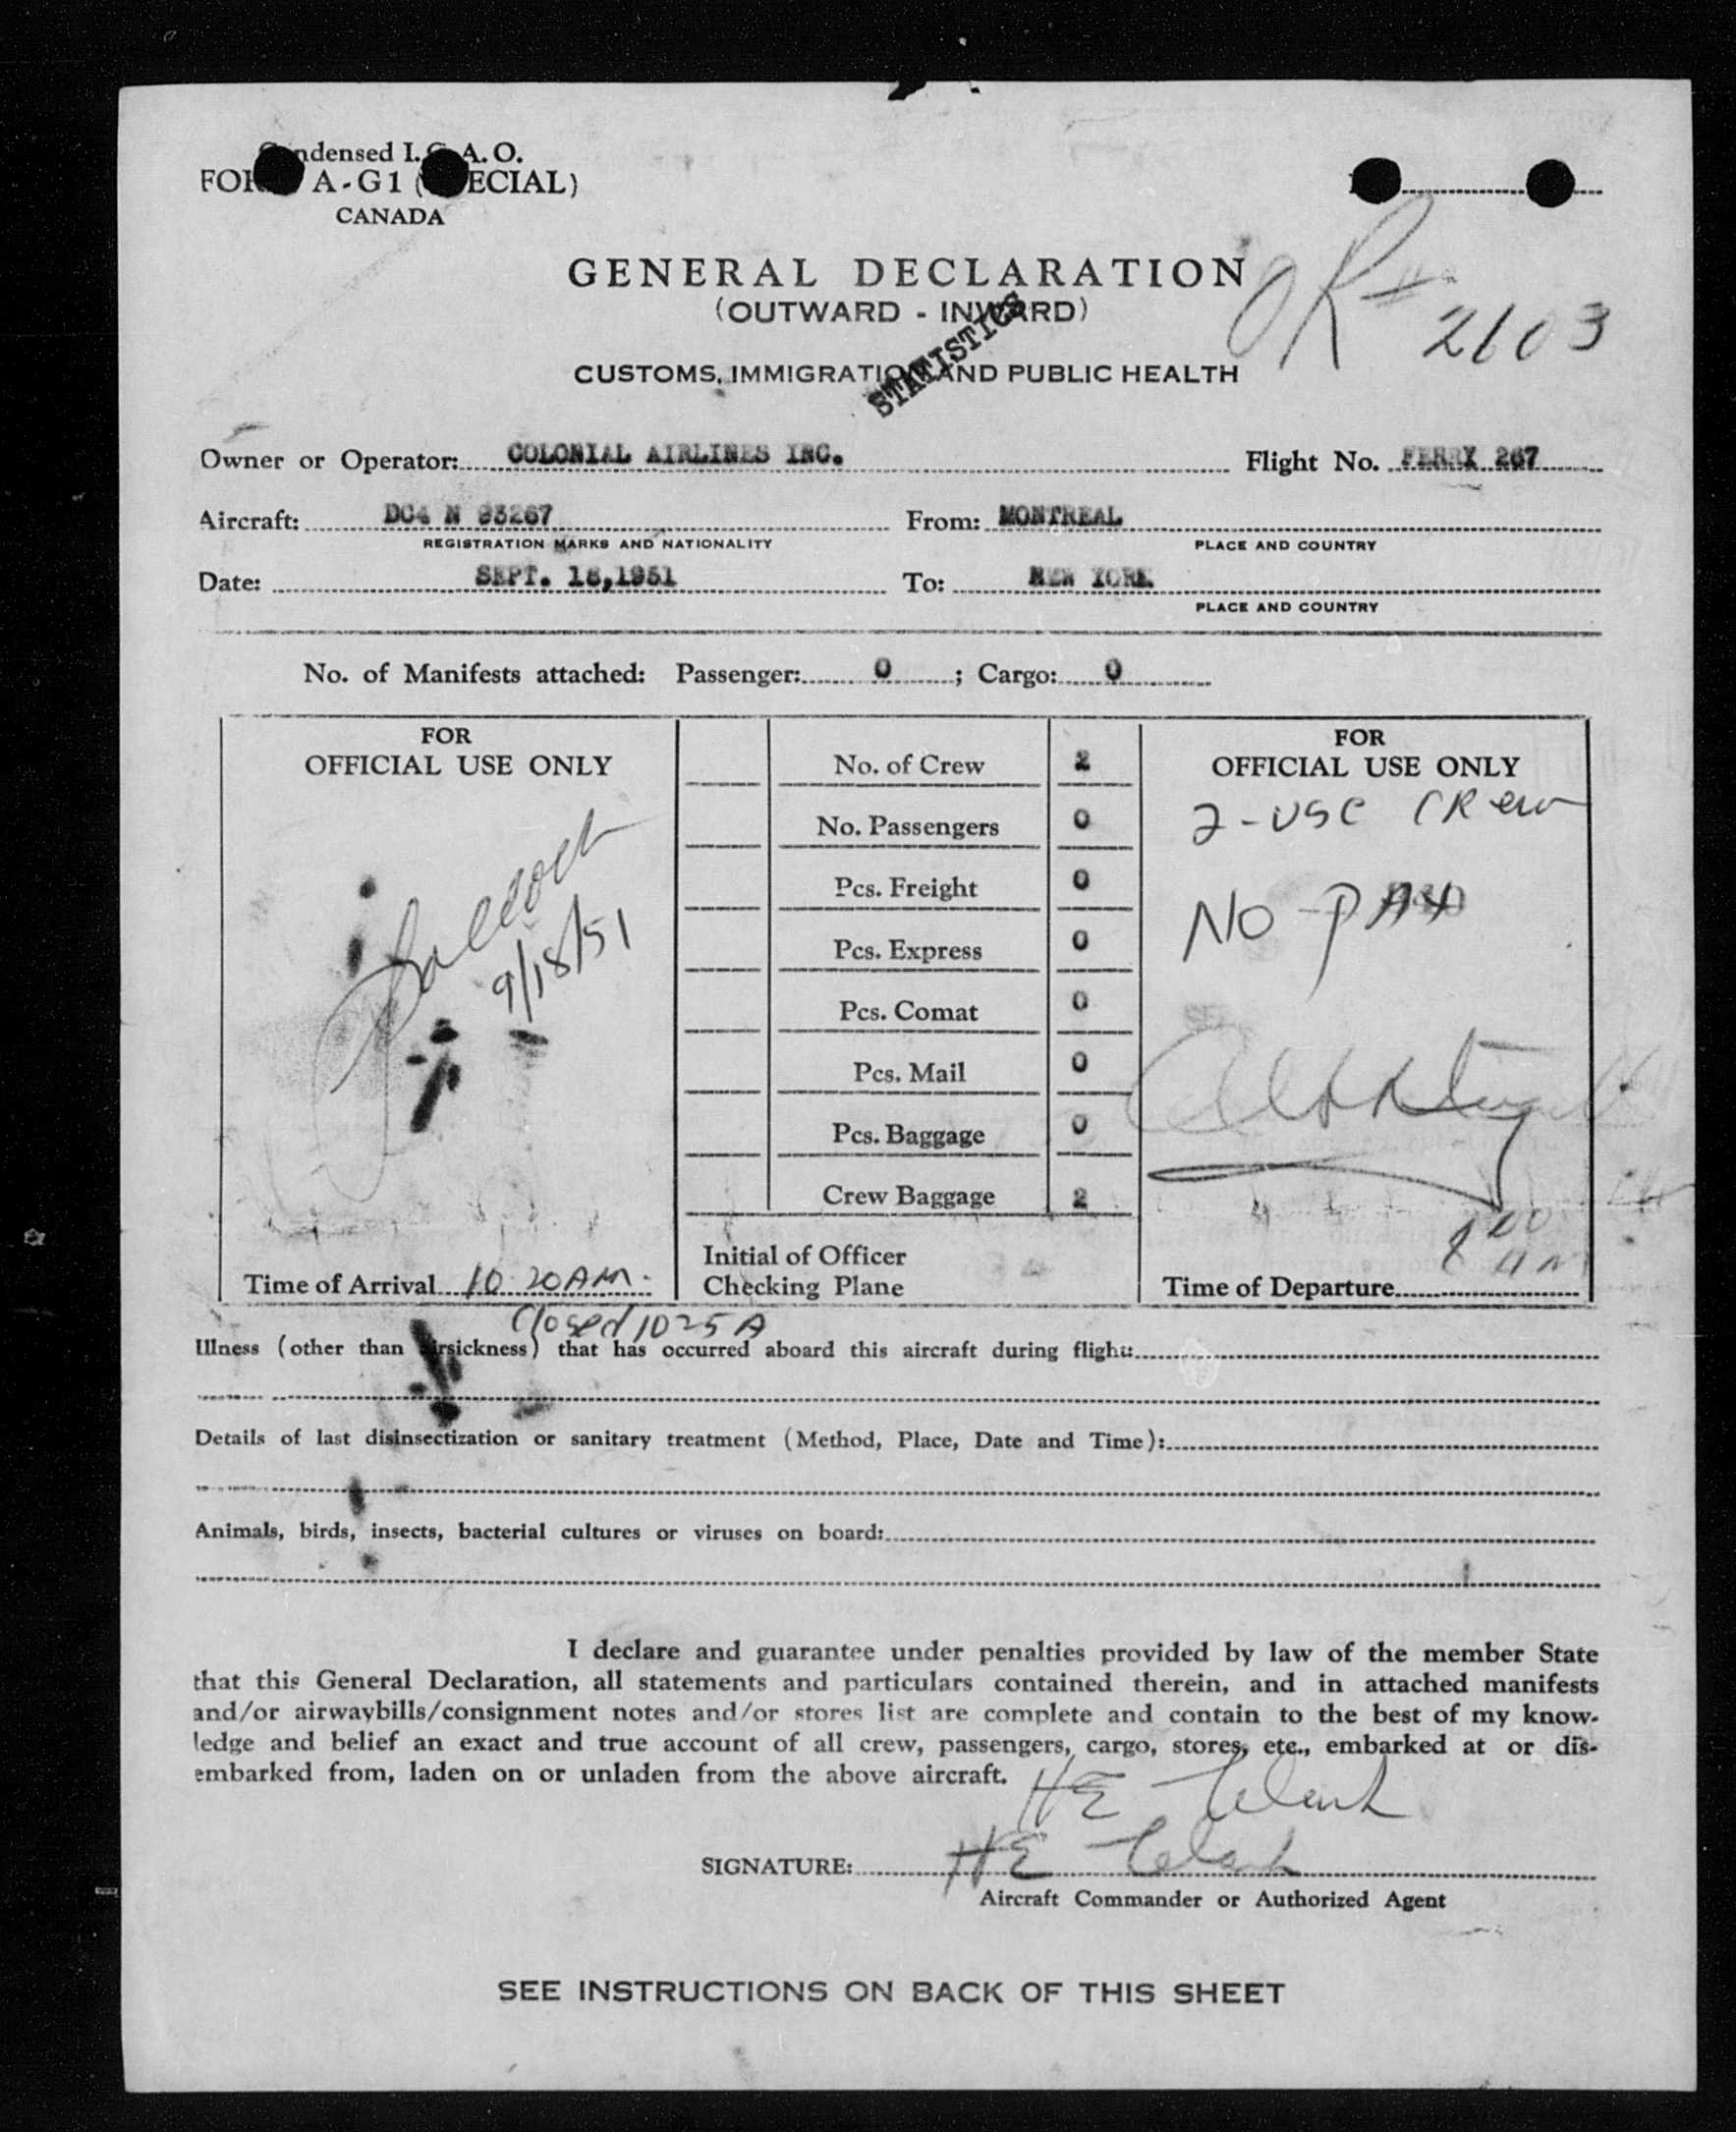 Condensed I.C.A.O.
FORM A-G1 (SPECIAL)
CANADA
OR# 2103
GENERAL DECLARATION
(OUTWARD - INWARD)
STATISTICS
CUSTOMS, IMMIGRATION AND PUBLIC HEALTH
Owner or Operator: COLONIAL AIRLINES INC. Flight No. FERRY 267
Aircraft: DC4 N 93267 From: MONTREAL
REGISTRATION MARKS AND NATIONALITY PLACE AND COUNTRY
Date: SEPT. 18,1951 To: NEW YORK
PLACE AND COUNTRY
No. of Manifests attached: Passenger: 0 ; Cargo: 0
FOR
OFFICIAL USE ONLY
9/18/51
Time of Arrival 10 20 AM.
Closed 1025 A
No. of Crew 2
No. Passengers 0
Pcs. Freight 0
Pcs. Express 0
Pcs. Comat 0
Pcs. Mail 0
Pcs. Baggage 0
Crew Baggage 2
Initial of Officer
Checking Plane
FOR
OFFICIAL USE ONLY
2-USC CRew
NO PAX
8 00
AM
Time of Departure
Illness (other than airsickness) that has occurred aboard this aircraft during flight:
Details of last disinsectization or sanitary treatment (Method, Place, Date and Time):
Animals, birds, insects, bacterial cultures or viruses on board:
I declare and guarantee under penalties provided by law of the member State
that this General Declaration, all statements and particulars contained therein, and in attached manifests
and/or airwaybills/consignment notes and/or stores list are complete and contain to the best of my know-
ledge and belief an exact and true account of all crew, passengers, cargo, stores, etc., embarked at or dis-
embarked from, laden on or unladen from the above aircraft.
HE Clark
SIGNATURE: HE Clark
Aircraft Commander or Authorized Agent
SEE INSTRUCTIONS ON BACK OF THIS SHEET